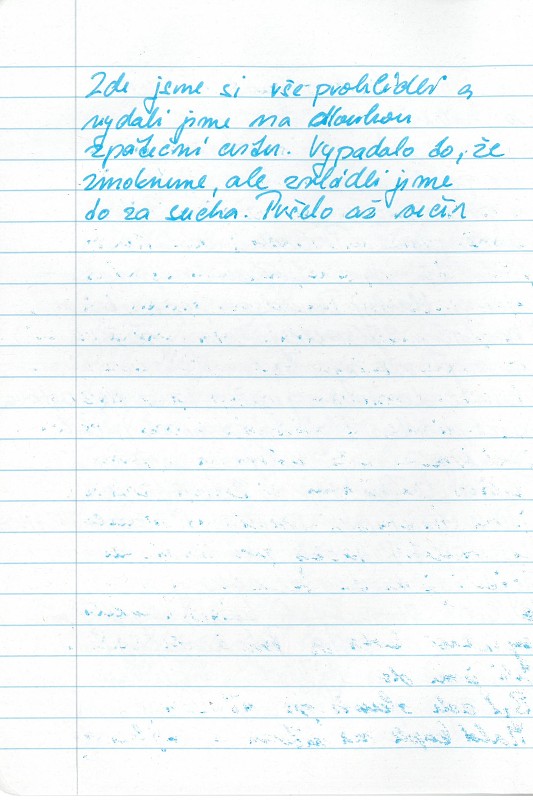 Zde jsme si vše prohlédli a
vydali jsme na dlouhou
zpáteční cestu. Vypadalo to, že
zmokneme, ale zvládli jsme
to za sucha. Pršelo až večer